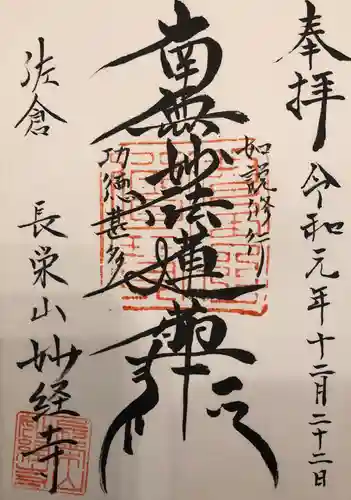 奉拝
令和元年十二月二十二日
如説修行
南無妙法蓮華経
功徳甚多
佐倉
長栄山妙経寺